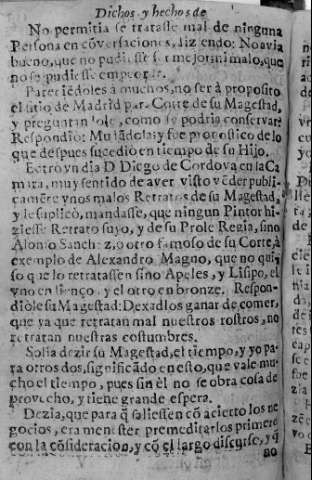 Dichos y hechos de
No permitia se tratasse mal de ninguna
Persona en cõversaciones, diziendo: No avia
bueno, que no pudiesse ser mejor ni malo, que
no se pudiesse empeorar.
Pareciẽdoles a muchos, no ser à proposito
el sitio de Madrid para Corte de su Magestad,
y preguntandole, como se podria conservar?
Respondiò: Mudãdola; y fue pronostico de lo
que despues sucediò en tiempo de su Hijo.
Entrò vn dia D Diego de Cordova en la Ca
mara, muy sentido de aver visto vẽder publi-
camẽte vnos malos Retratos de su Magestad,
y le suplicò, mandasse, que ningun Pintor hi-
ziesse Retrato suyo, y de su Prole Regia, sino
Alonso Sanchez, o otro famoso de su Corte, à
exemplo de Alexandro Magno, que no qui-
so que lo retratassen sino Apeles, y Lisipo, el
vno en lienço, y el otro en bronze. Respon-
diòle su Magestad: Dexadlos ganar de comer,
que ya que retratan mal nuestros rostros, no
retratan nuestras costumbres.
Solia dezir su Magestad, el tiempo, y yo pa-
ra otros dos, significãdo en esto, que vale mu-
cho el tiempo, pues sin èl no se obra cosa de
provecho, y tiene grande espera.
Dezia, que para q̃ saliessen cõ acierto los ne
gocios, era menester premeditarlos primero
con la cõsideracion, y cõ el largo discurso, y q̃
no